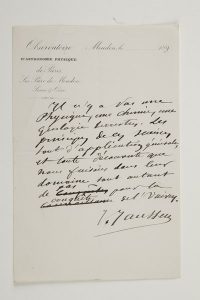 Observatoire
D'ASTRONOMIE PHYSIQUE
de Paris
Sis Parc de Meudon
Seine & Oise
Meudon, le 189
Il n'y a pas une
Physique, une Chimie, une
Géologie terrestres. Les
principes de ces sciences
sont d'application générale,
et toute découverte que
nous faisons dans leur
domaine sont autant
de pas pour la
conquête de l'Univers
J. Janssen